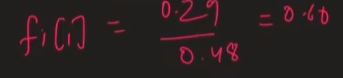 fi[i] = 0.29 / 0.48 = 0.60